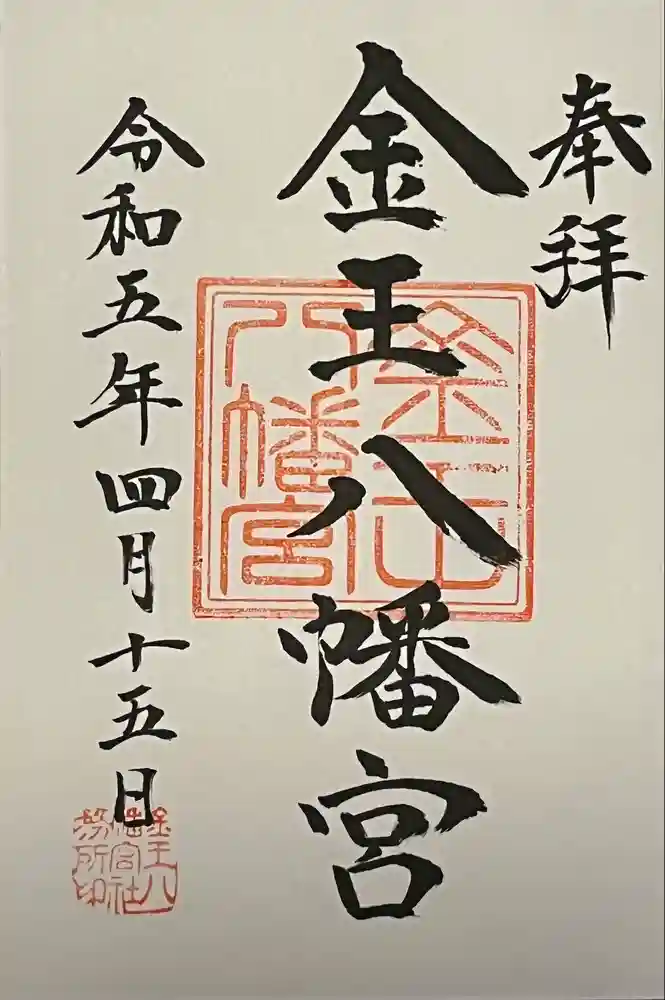 奉拝
金王八幡宮
金王
八幡宮
令和五年四月十五日
金王八
幡宮社
務所印